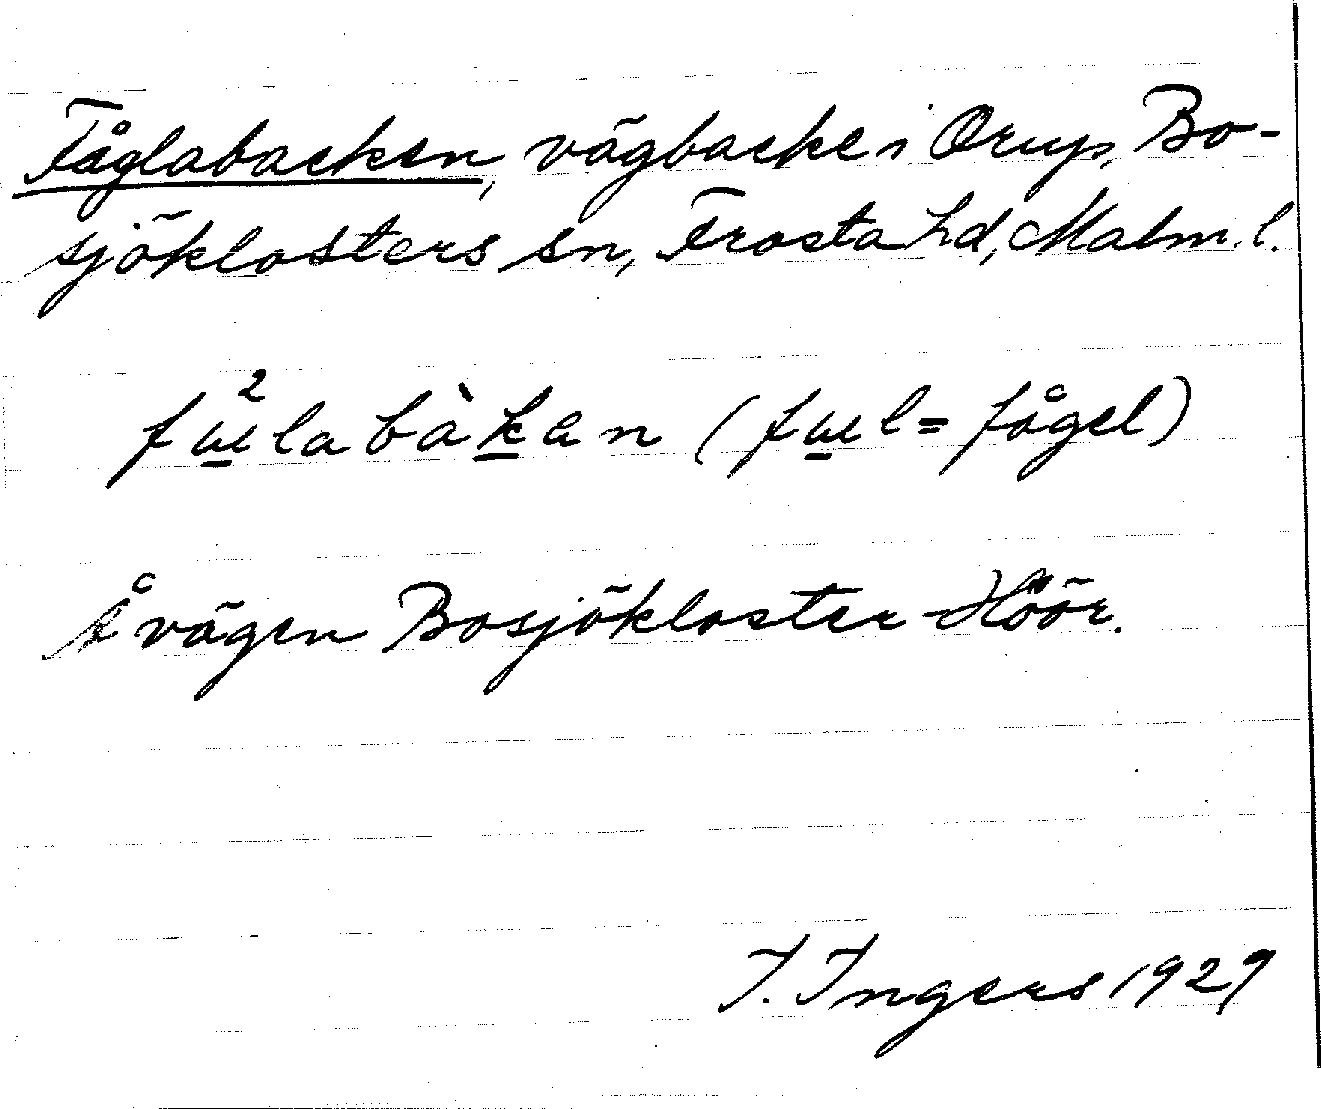 Fåglabacken, vägbacke i Orup, Bo-
sjöklosters sn, Frosta hd, Malm. l.
fɯ̲²la bàk̲an (fɯ̲l = fågel)
Å vägen Bosjökloster-Höör.
I. Ingers 1929